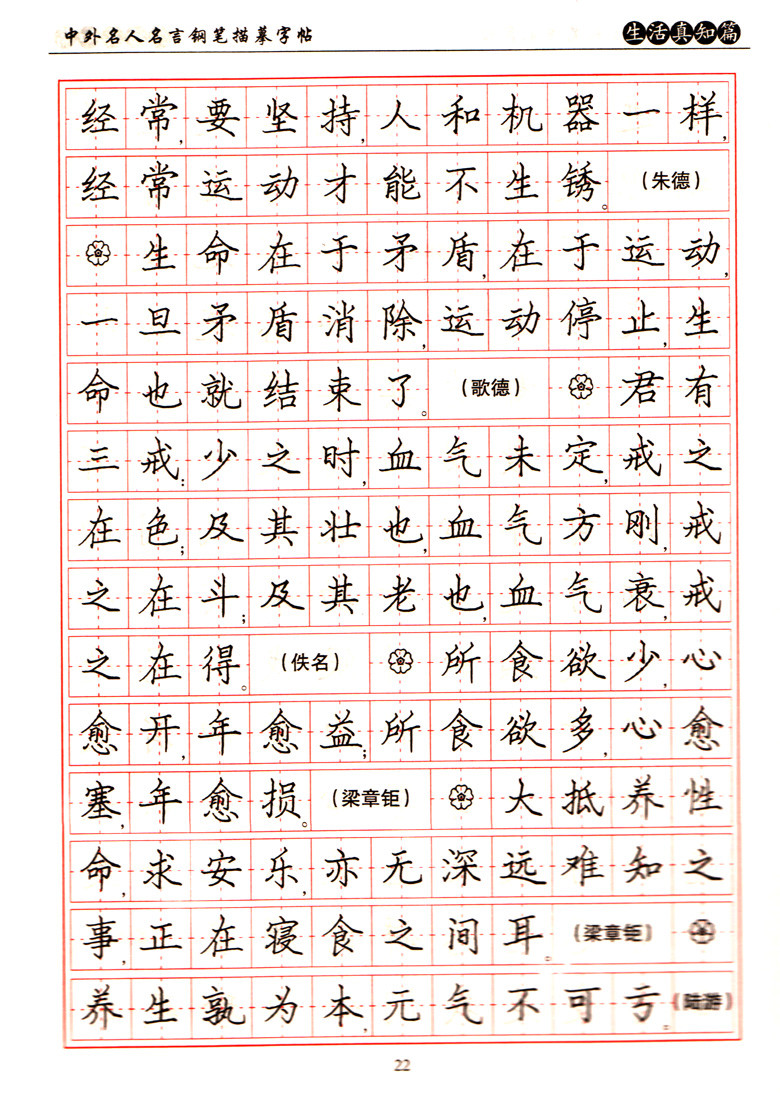 中外名人名言钢笔描摹字帖
生活真知篇
经常,要坚持,人和机器一样,
经常运动才能不生锈。(朱德)
生命在于矛盾,在于运动,
一旦矛盾消除,运动停止,生
命也就结束了。(歌德) 君有
三戒:少之时,血气未定,戒之
在色;及其壮也,血气方刚,戒
之在斗;及其老也,血气衰,戒
之在得。(佚名) 所食欲少,心
愈开,年愈益;所食欲多,心愈
塞,年愈损。(梁章钜) 大抵养性
命,求安乐,亦无深远难知之
事,正在寝食之间耳。(梁章钜)
养生孰为本,元气不可亏。(陆游)
22